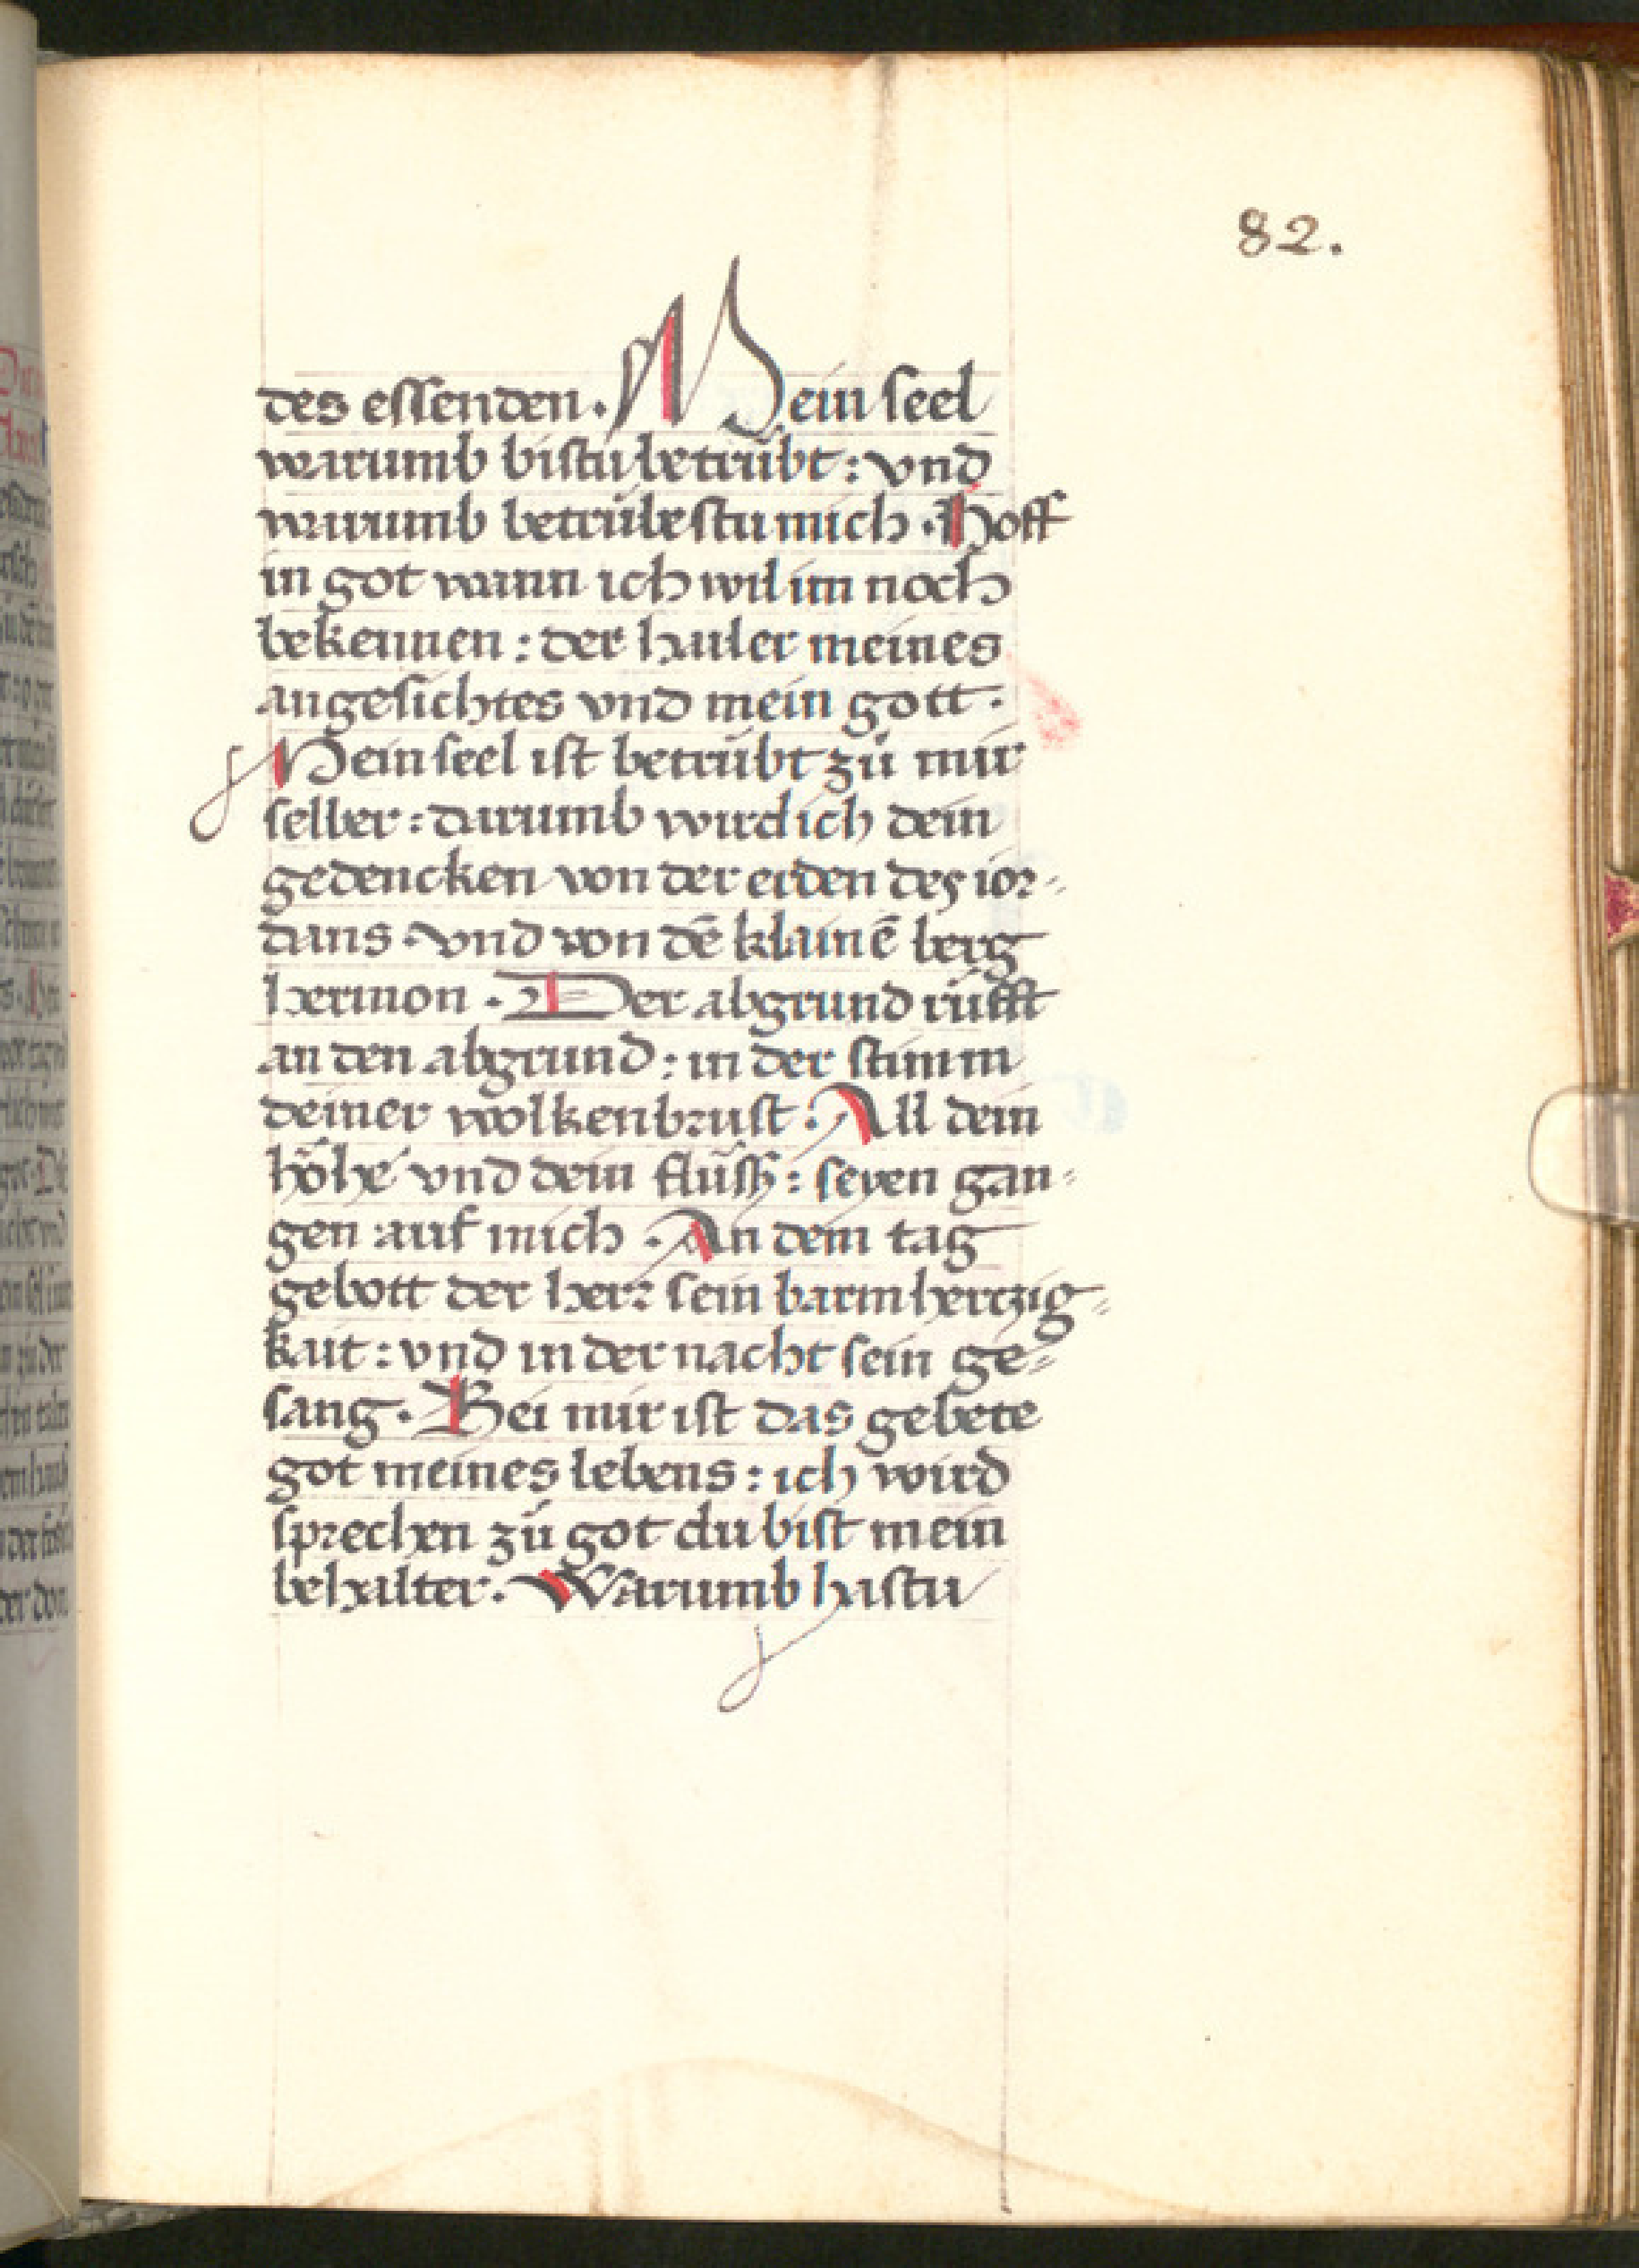 82.
des essenden. Mein seel
warumb bistu betrübt: vnd
warumb betrübestu mich. Hoff
in got wann ich wil im noch
bekennen: der hailer meines
angesichtes vnd mein gott.
Mein seel ist betrübt zů mir
selber: darumb wird ich dein
gedencken von der erden des ior⸗
dans. vnd von dē klainē berg
hermon. Der abgrund růfft
an den abgrund: in der stimm
deiner wolkenbrust. All dein
höhe vnd dein flüß: seyen gan⸗
gen auf mich. An dem tag
gebott der herr sein barmhertzig⸗
kait: vnd in der nacht sein ge⸗
sang. Bei mir ist das gebete
got meines lebens: ich wird
sprechen zů got du bist mein
behalter. Warumb hastu